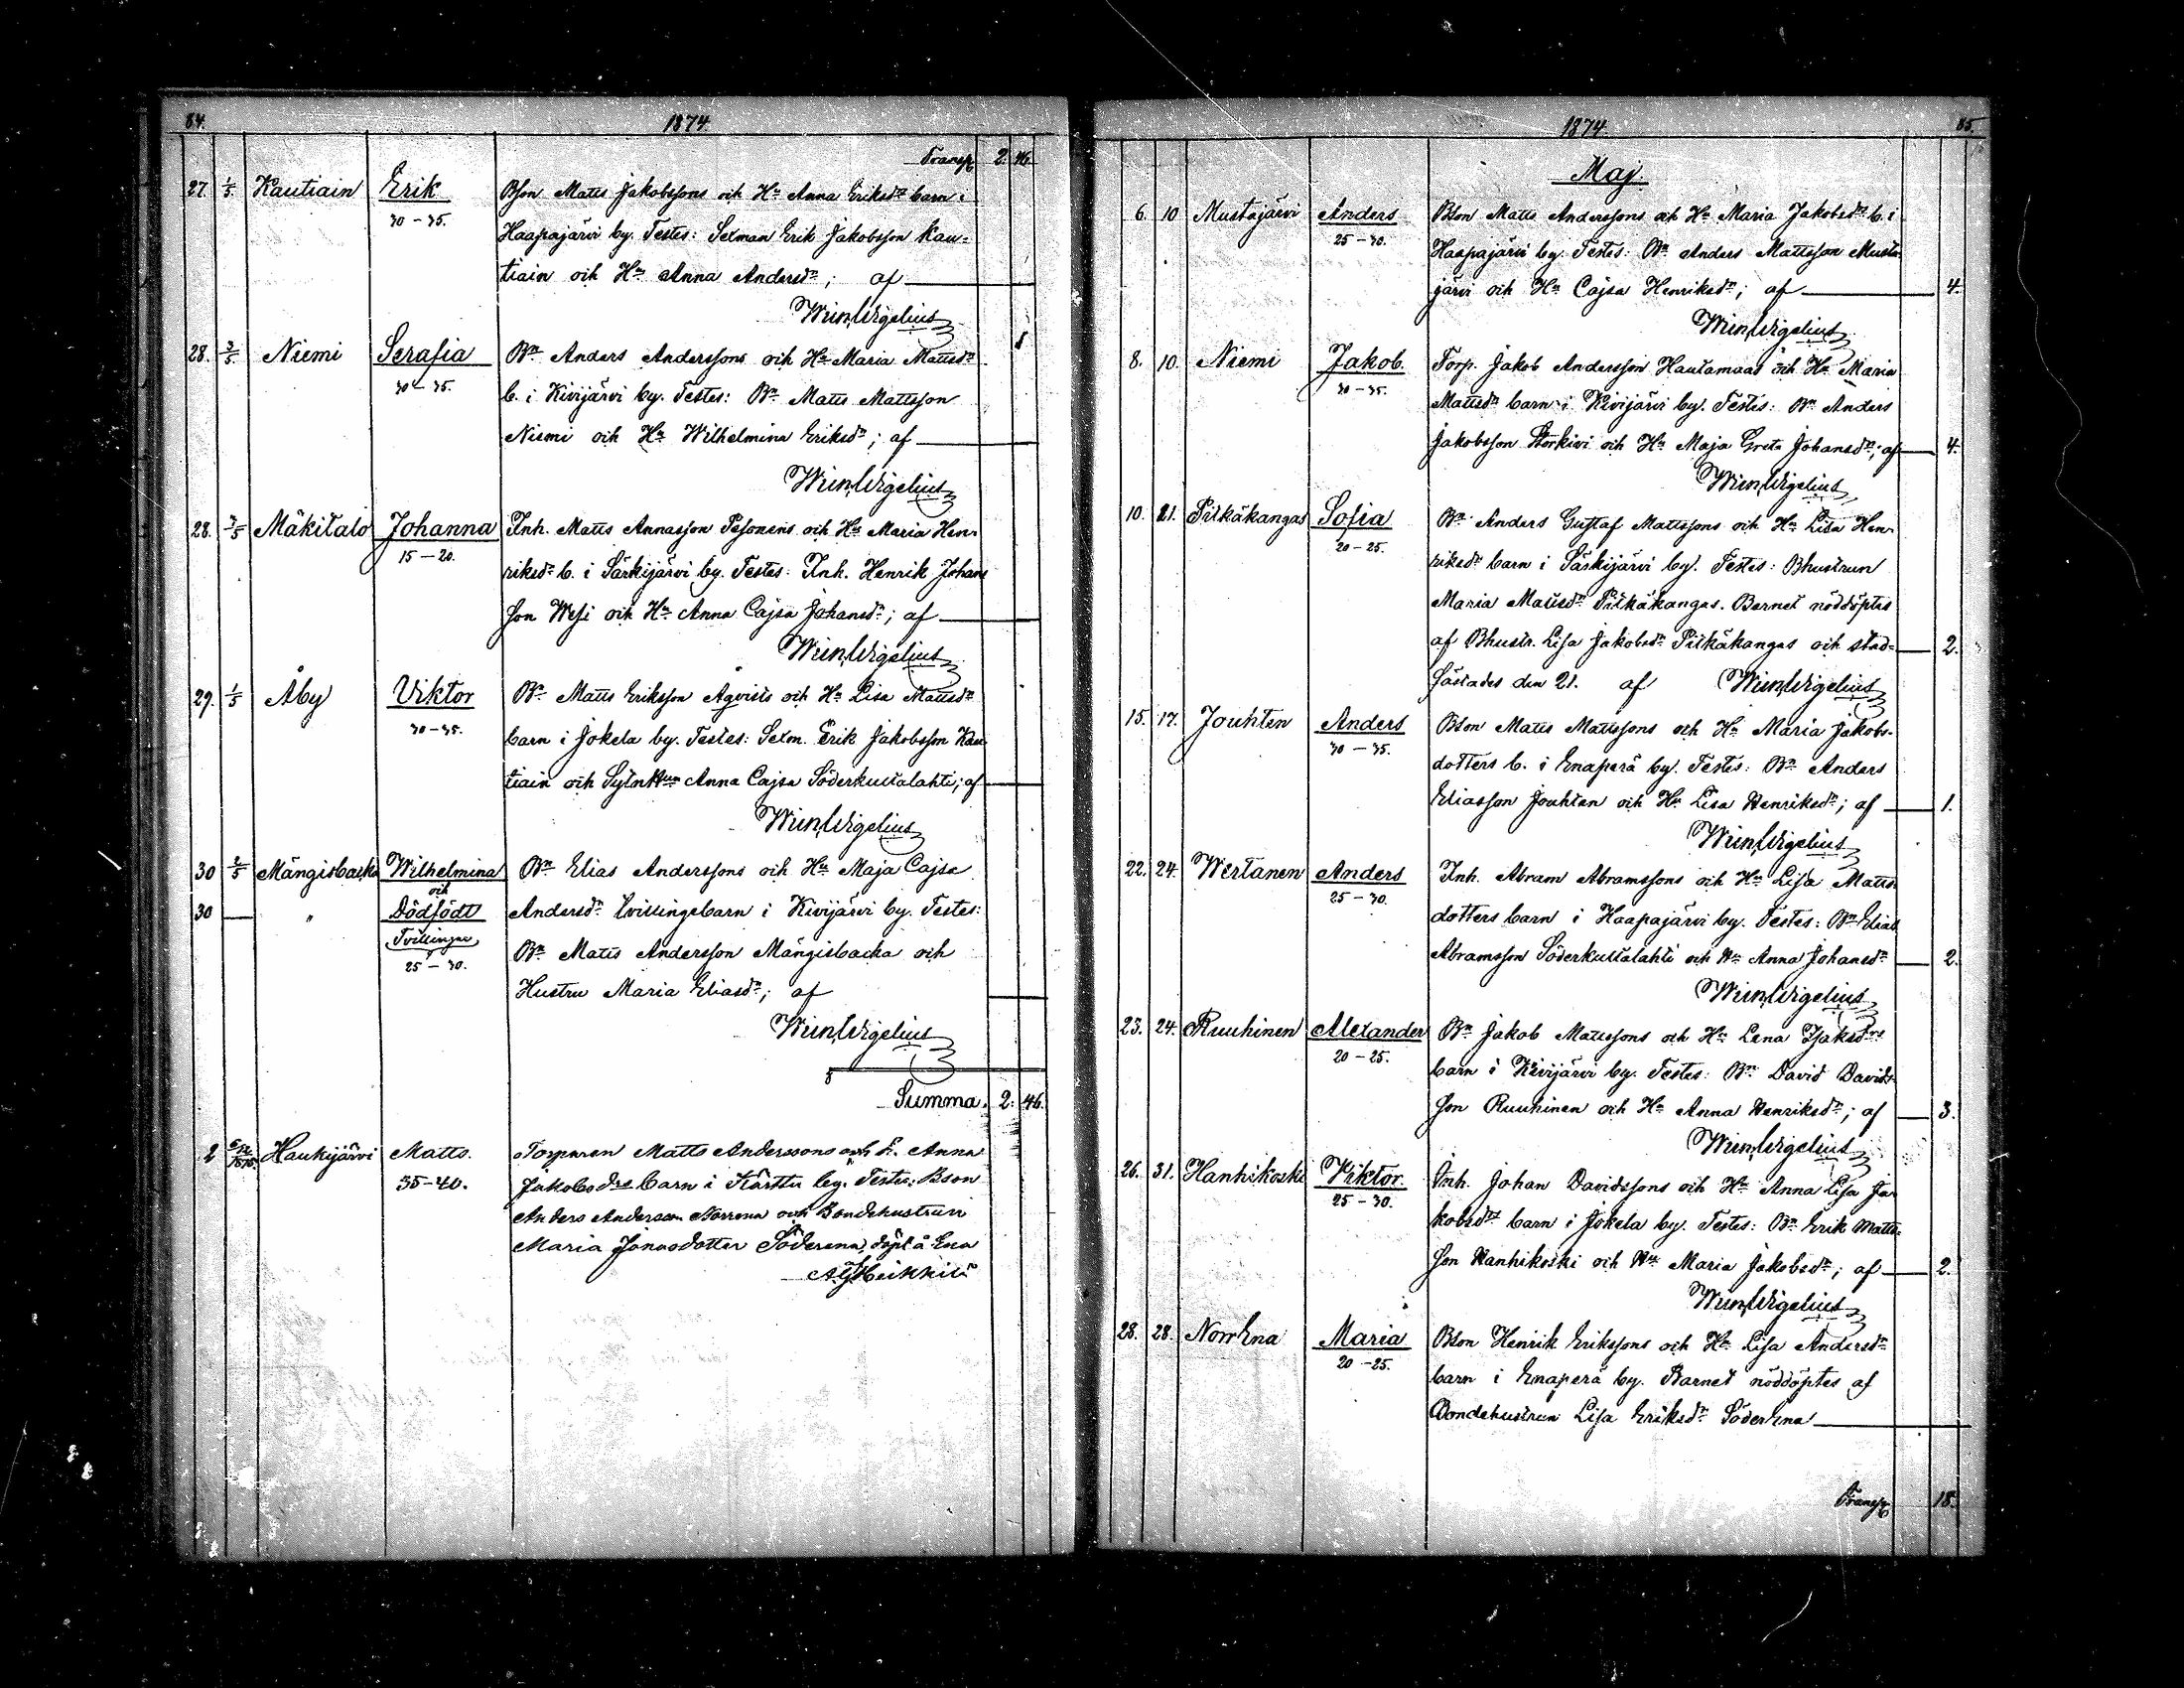 84. 1874
Transp. 2. 46.
27. 1/5 Kautiain Erik Bson Matts Jakobssons och Hu Anna Eriksdr barn i
30–35. Haapajärvi by. Testes: Sexman Erik Jakobsson Kau-
tiain och Hu Anna Andersdr; af
Wm Wigelius
28. 3/5 Niemi Serafia Bn Anders Anderssons och Hu Maria Mattsdr
30–35. b. i Kivijärvi by. Testes: Bn Matts Mattsson
Niemi och Hu Wilhelmina Eriksdr; af
Wm Wigelius
28. 3/5 Mäkitalo Johanna Inh. Matts Annasson Pesonens och Hu Maria Hen-
15–20. riksdr b. i Särkijärvi by. Testes: Inh. Henrik Johans
son Wesi och Hu Anna Cajsa Johansdr; af
Wm Wigelius
29. 1/5 Åby Viktor Bn Matts Eriksson Åqvists och Hu Lisa Mattsdr
30–35. barn i Jokela by. Testes: Sexm. Erik Jakobsson Kau
tiain och Sytn Hun Anna Cajsa Söderkultalahti; af
Wm Wigelius
30 2/5 Mängisbacka Wilhelmina Bn Elias Anderssons och Hu Maja Cajsa
och
30 — " Dödfödt Andersdr tvillingebarn i Kivijärvi by. Testes:
Tvillingar Bn Matts Andersson Mängisbacka och
25–30. Hustru Maria Eliasdr; af
Wm Wigelius
Summa. 2. 46.
2 Haukijärvi Matts. Torparen Matts Anderssons och h. Anna
35–40. Jakobsdrs barn i Kärttu by. Testes: Bson
Anders Andersson Norrena och Bondehustrun
Maria Jonasdotter Söderena, döpt å Ena
Heikkilä
1874 85.
Maj.
6. 10 Mustajärvi Anders Bson Matts Anderssons och Hu Maria Jakobsdr b. i
25–30. Haapajärvi by. Testes: Bn Anders Mattsson Musta
järvi och Hu Cajsa Henriksdr; af 4.
Wm Wigelius
8. 10. Niemi Jakob. Torp. Jakob Andersson Hautamaas och Hu Maria
30–35. Mattsdr barn i Kivijärvi by. Testes: Bn Anders
Jakobsson Storkivi och Hu Maja Greta Johansdr; af 4.
Wm Wigelius
10. 21. Pitkäkangas Sofia Bn Anders Gustaf Mattssons och Hu Lisa Hen-
20–25. riksdr barn i Särkijärvi by. Testes: Bhustrun
Maria Mattsdr Pitkäkangas. Barnet nöddöptes
af Bhustr. Lisa Jakobsdr Pitkäkangas och stad- 2.
fästades den 21. af Wm Wigelius
15. 17. Jouhten Anders Bson Matts Mattssons och Hu Maria Jakobs-
30–35. dotters b. i Enaperä by. Testes: Bn Anders
Eliasson Jouhten och Hu Lisa Henriksdr; af 1.
Wm Wigelius
22. 24. Wertanen Anders Inh. Abram Abramssons och Hu Lisa Matts
25–30. dotters barn i Haapajärvi by. Testes: Bn Elias
Abramsson Söderkultalahti och Hu Anna Johansdr 2.
Wm Wigelius
23. 24. Ruuhinen Alexander Bn Jakob Mattssons och Hu Lena Isaksdrs
20–25. barn i Kivijärvi by. Testes: Bn David Davids-
son Ruuhinen och Hu Anna Henriksdr; af 3.
Wm Wigelius
26. 31. Hanhikoski Viktor. Inh. Johan Davidssons och Hu Anna Lisa Ja
25–30. kobsdrs barn i Jokela by. Testes: Bn Erik Matts-
son Hanhikoski och Hu Maria Jakobsdr; af 2.
Wm Wigelius
28. 28. NorrEna Maria Bson Henrik Erikssons och Hu Lisa Andersdr
20–25. barn i Enaperä by. Barnet nöddöptes af
Bondehustrun Lisa Eriksdr SöderEna
Transp. 18.